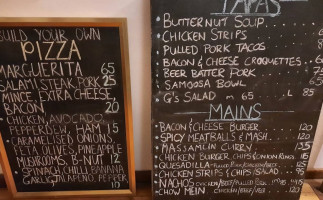 BUILD YOUR OWN
PIZZA
MARGUERITA 65
SALAMI, STEAK, PORK 25
MINCE, EXTRA CHEESE
BACON 20
CHICKEN, AVOCADO,
PEPPERDEW, HAM 15
CARAMELISED ONIONS
FETA, OLIVES, PINEAPPLE
MUSHROOMS, B-NUT 12
SPINACH, CHILLI, BANANA
GARLIC, JALAPENO, PEPPER
10
TAPAS
• BUTTERNUT SOUP
• CHICKEN STRIPS 65
• PULLED PORK TACOS 8
• BACON & CHEESE CROQUETTES
• BEER BATTER PORK
• SAMOOSA BOWL
• G's SALAD M 65 L 85
MAINS
• BACON & CHEESE BURGER 120
• SPICY MEATBALLS & MASH 120
• MASSAMUN CURRY 135
• CHICKEN BURGER, CHIPS & ONION RINGS
• QUESADILLA
• CHICKEN STRIPS | CHIPS | SALAD
• NACHOS CHICKEN/BEEF/PULLED PORK
• CHOW MEIN CHICKEN/BEEF/PORK 120